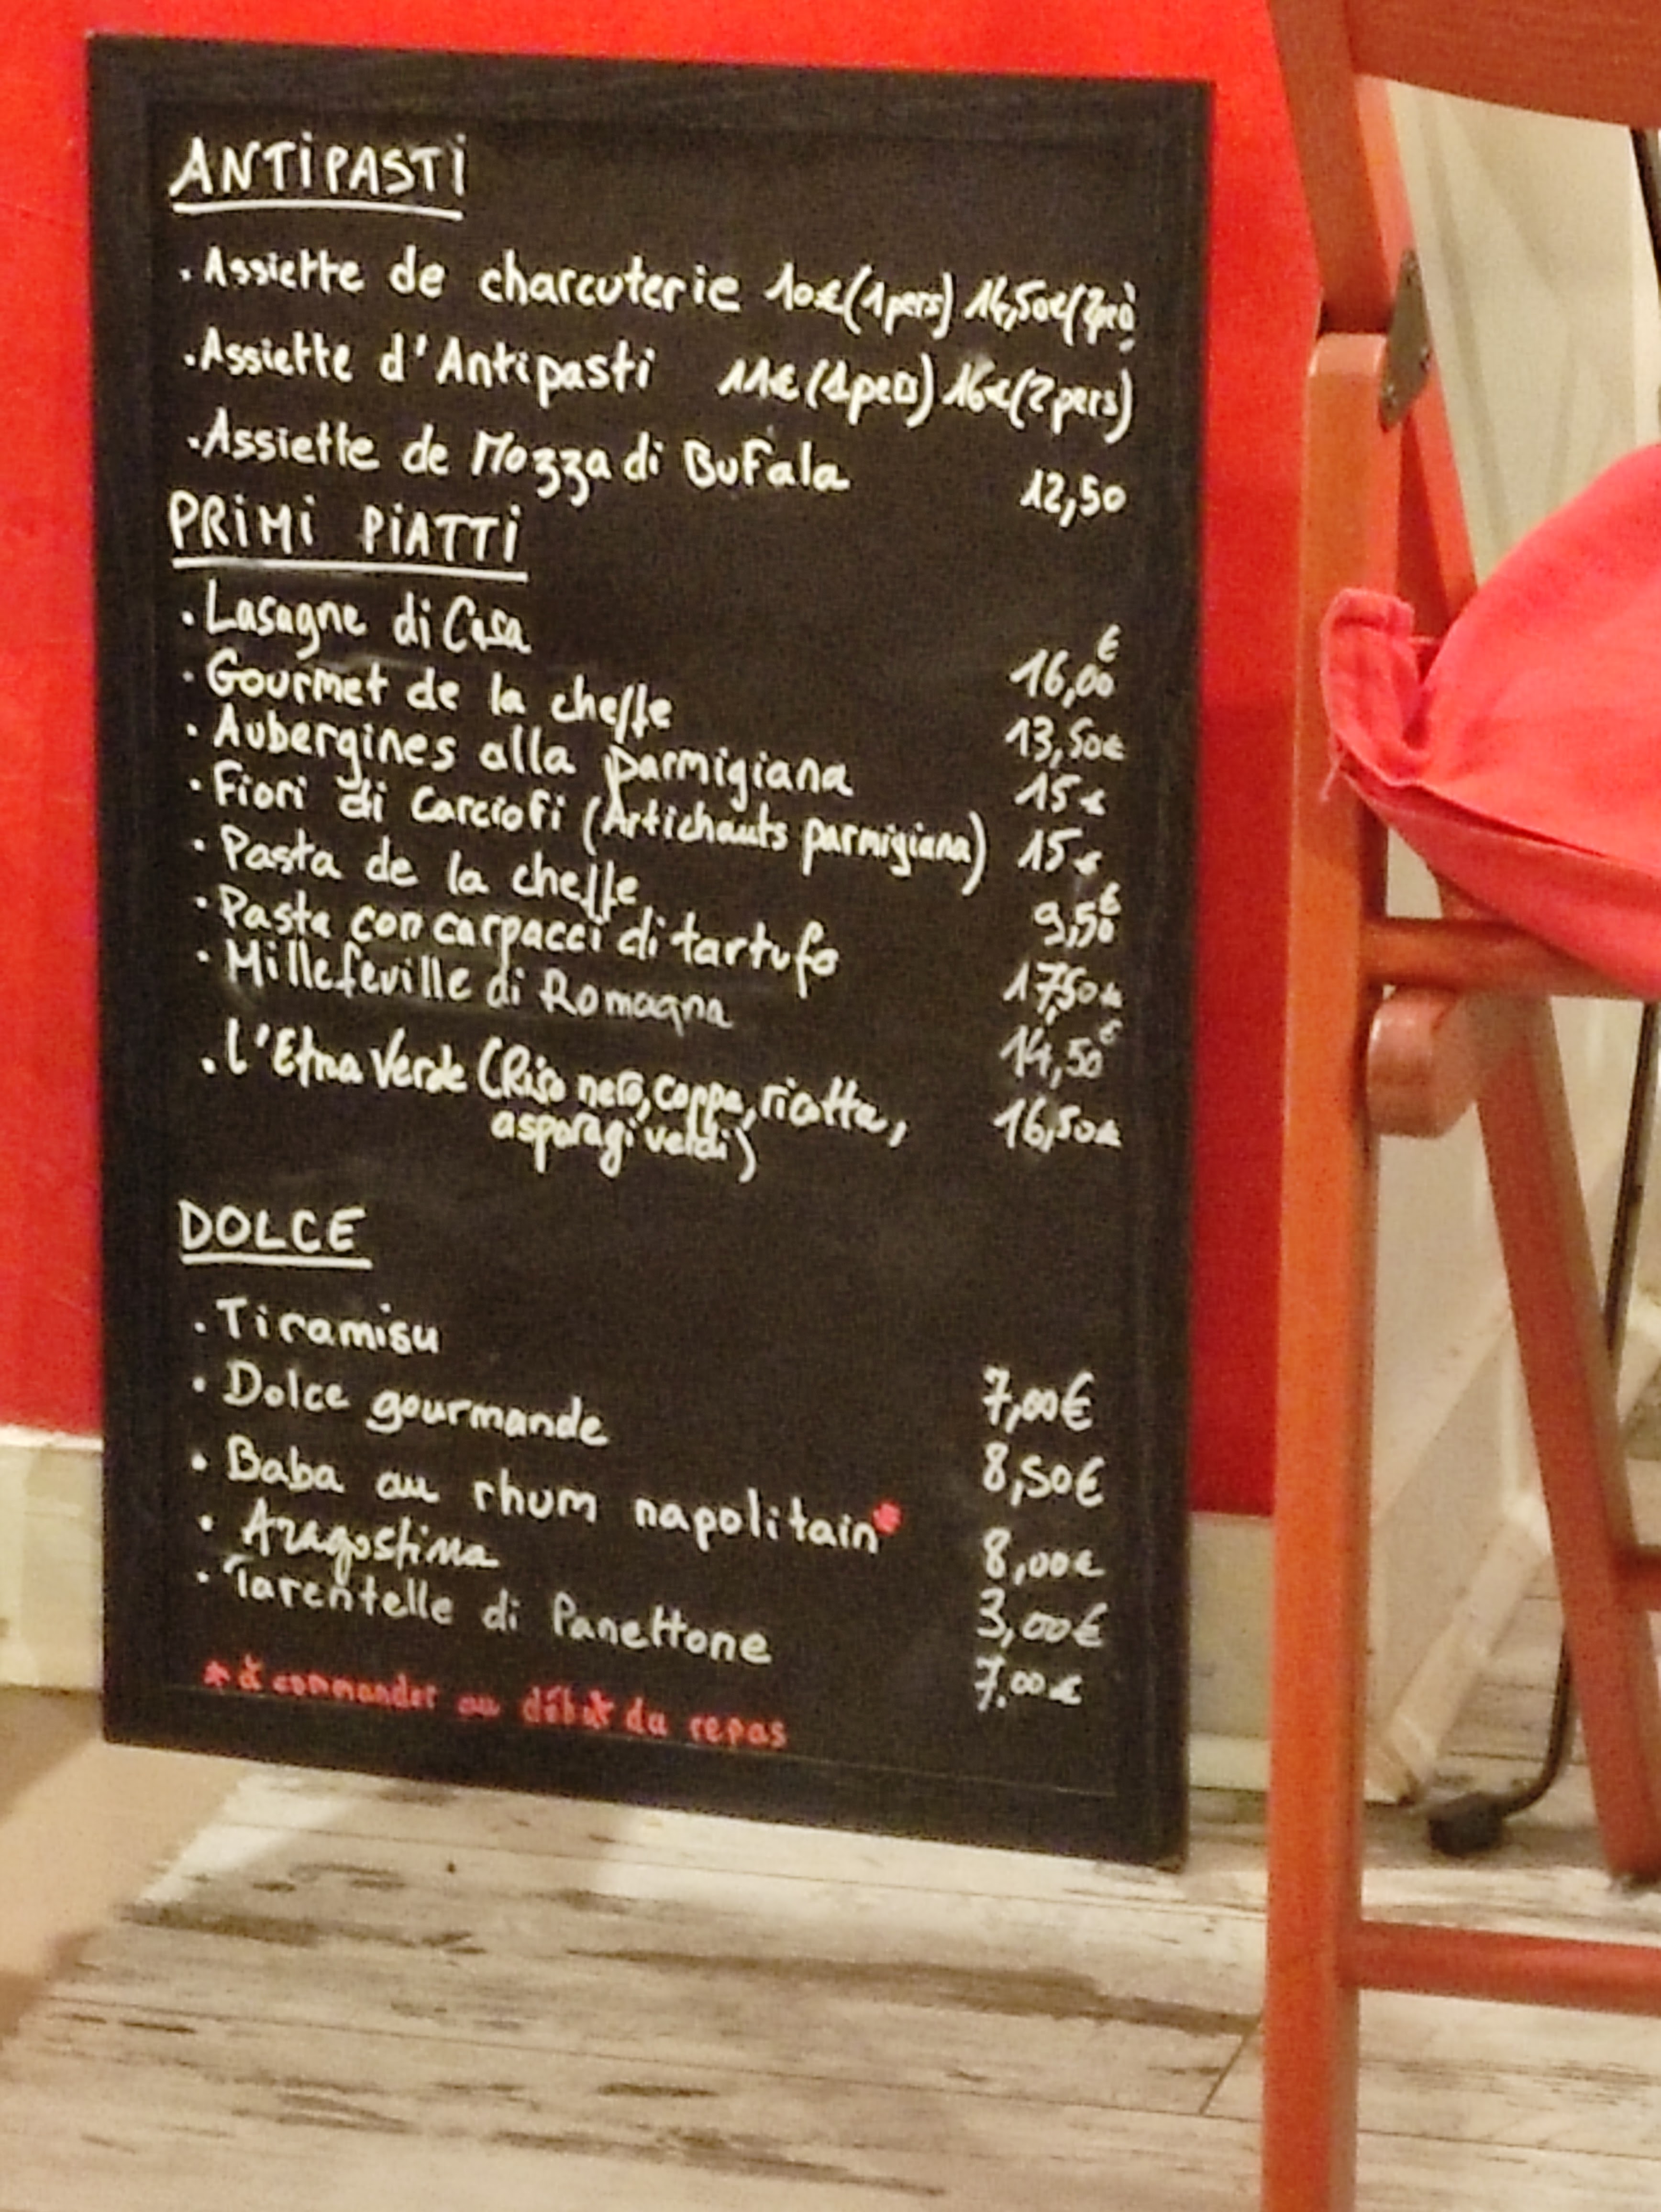 ANTiPASTi
. Assiette de charcuterie 10€ (1pers) 14,50€ (2pers)
. Assiette d'Antipasti 11€ (1pers) 16€ (2pers)
. Assiette de Mozza di Bufala 12,50
PRiMi PiATTi
. Lasagne di Casa 16,00€
. Gourmet de la cheffe 13,50€
. Aubergines alla parmigiana 15€
. Fiori di Carciofi (Artichauts parmigiana) 15€
. Pasta de la cheffe 9,50€
. Pasta con carpacci di tartufo 17,50€
. Millefeuille di Romagna 14,50€
. l'Etna Verde (Riso nero, coppa, ricotta, 16,50€
asparagi verdi)
DOLCE
. Tiramisu 7,00€
. Dolce gourmande 8,50€
. Baba au rhum napolitain* 8,00€
. Aragostina 3,00€
. Tarentelle di Panettone 7,00€
* à commander au début du repas